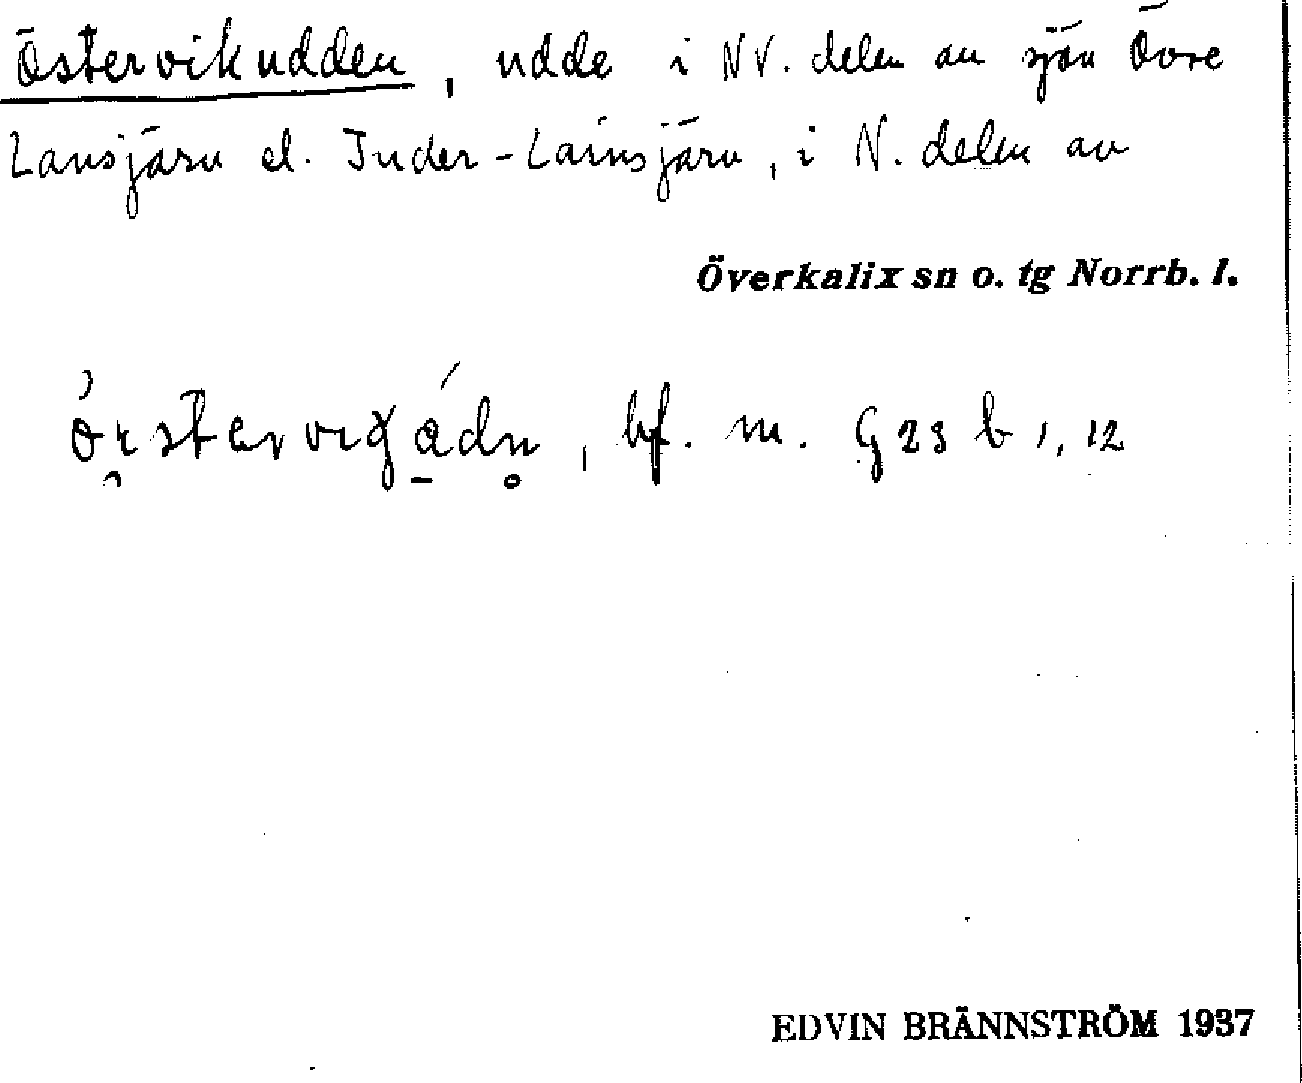 Östervikudden, udde i NV. delen av sjön Övre
Lansjärv el. Inder-Lainsjärv, i N. delen av
Överkalix sn o. tg Norrb. l.
, bf. m. G 23 b 1, 12
EDVIN BRÄNNSTRÖM 1937